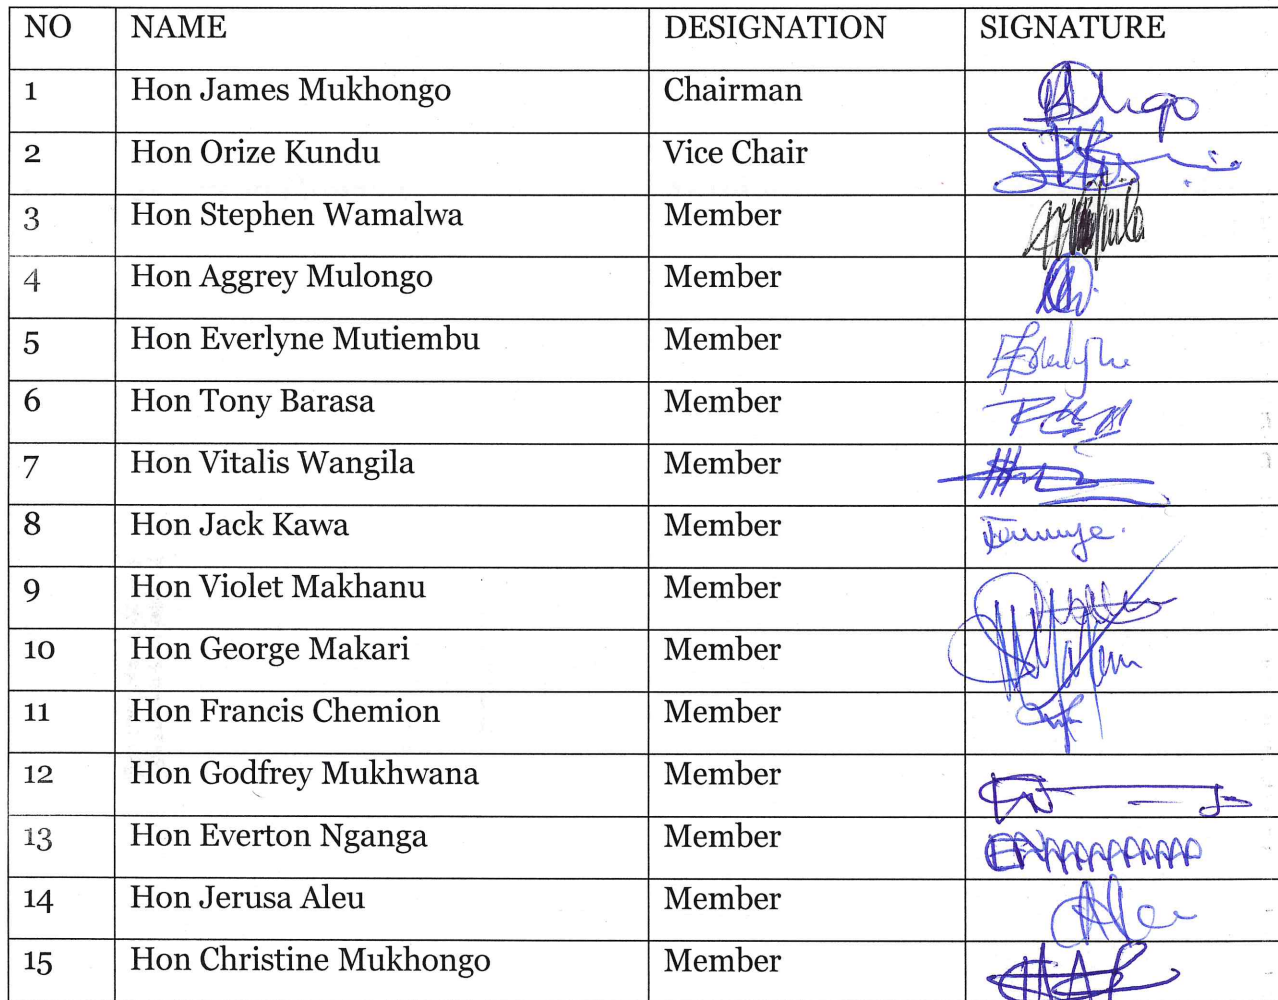 NO NAME DESIGNATION SIGNATURE
1 Hon James Mukhongo Chairman
2 Hon Orize Kundu Vice Chair
3 Hon Stephen Wamalwa Member
4 Hon Aggrey Mulongo Member
5 Hon Everlyne Mutiembu Member
6 Hon Tony Barasa Member
7 Hon Vitalis Wangila Member
8 Hon Jack Kawa Member
9 Hon Violet Makhanu Member
10 Hon George Makari Member
11 Hon Francis Chemion Member
12 Hon Godfrey Mukhwana Member
13 Hon Everton Nganga Member
14 Hon Jerusa Aleu Member
15 Hon Christine Mukhongo Member